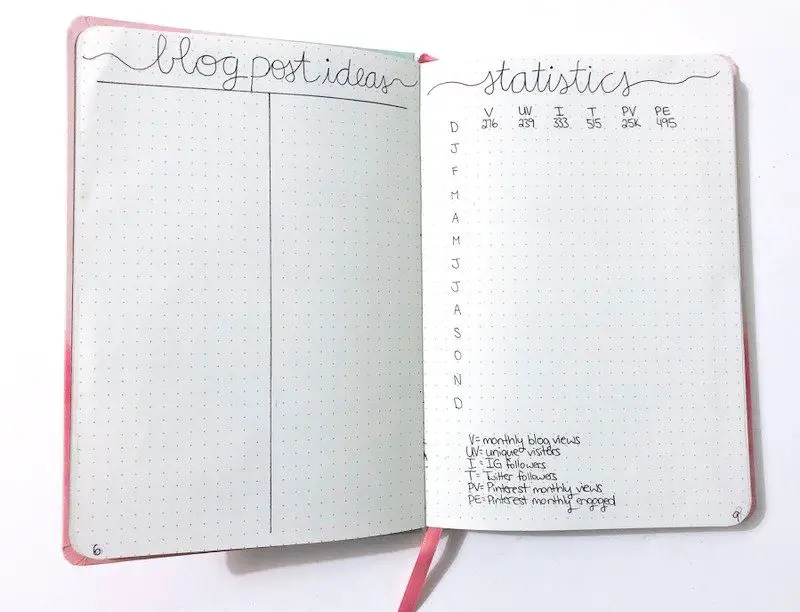 blog post ideas
6
statistics
V UV I T PV PE
D 276 239 333 515 25K 495
J
F
M
A
M
J
J
A
S
O
N
D
V= monthly blog views
UV= unique visiters
I = IG followers
T= Twitter followers
PV= Pinterest monthly views
PE= Pinterest monthly engaged
9